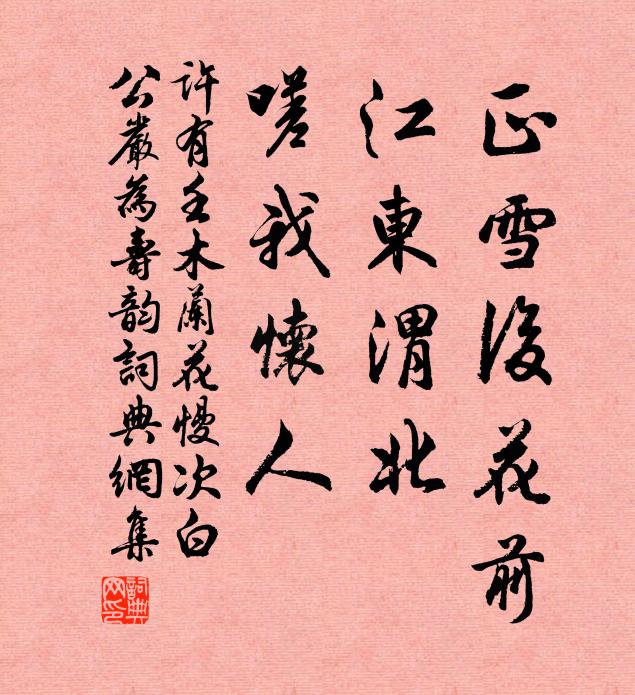 正雪後花前
江東渭北
嗟我懷人
許有壬木蘭花慢次白
公嚴為壽韵詞典網集
詞典網印